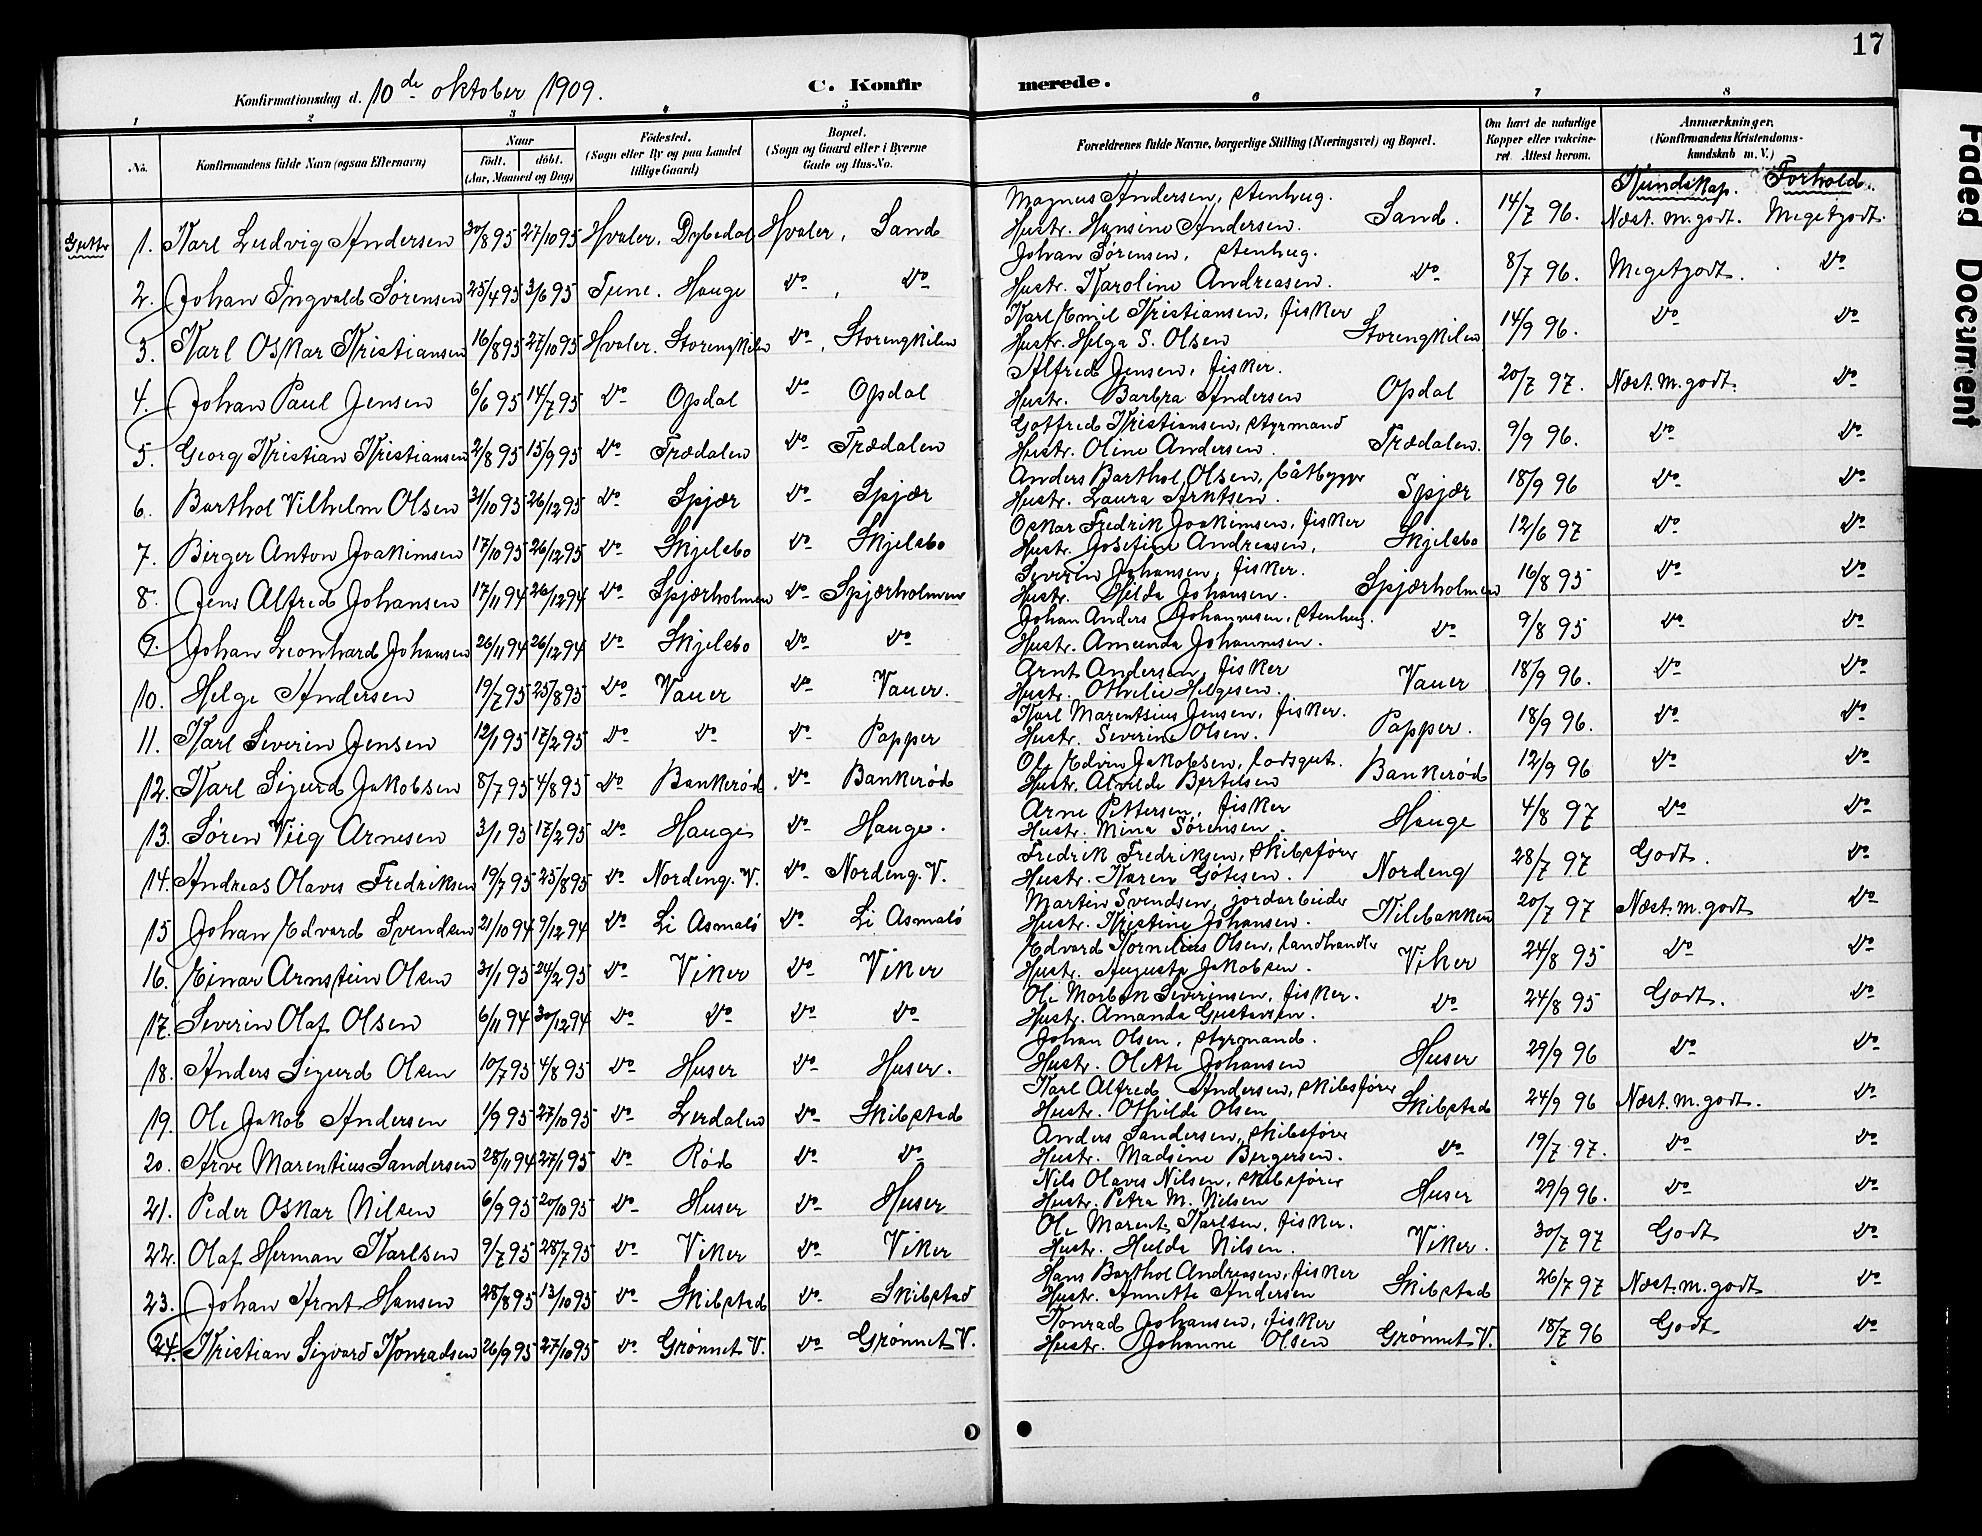 17
Konfirmationsdag d. 10de oktober 1909.
C. Konfirmerede.
1 2 3 4 5 6 7 8
No. Konfirmandens fulde Navn (ogsaa Efternavn) Naar født. døbt. (Aar, Maaned og Dag) Födested. (Sogn eller By og paa Landet tillige Gaard) Bopæl. (Sogn og Gaard eller i Byerne Gade og Hus-No. Forældrenes fulde Navne, borgerlige Stilling (Næringsvei) og Bopæl. Om havt de naturlige Kopper eller vakcineret. Attest herom. Anmærkninger, (Konfirmandens Kristendomskundskab m. V.)
Kundskap. Forhold.
Gutter
1. Karl Ludvig Andersen 30/8 95 27/10 95 Hvaler. Dybedal Hvaler, Sand Magnus Andersen, stenhug. Hustr. Hansine Andersen. Sand. 14/7 96. Næst. m. godt. Megetgodt.
2. Johan Ingvald Sørensen 25/4 95 3/6 95 Tune. Hauge do , do Johan Sørensen, stenhug. Hustr. Karoline Andreasen. do 8/7 96. Megetgodt. do
3. Karl Oskar Kristiansen 16/8 95 27/10 95 Hvaler. Storengkilen do , Storengkilen Karl Emil Kristiansen, fisker Hustr. Helga S. Olsen Storengkilen 14/9 96. do do
4. Johan Paul Jensen 6/6 95 14/7 95 do Opdal do Opdal Alfred Jensen, fisker. Hustr. Barbra Andersen Opdal 20/7 97. Næst. m. godt. do
5. Georg Kristian Kristiansen 2/8 95 15/9 95 do Trædalen do Trædalen Gotfred Kristiansen, styrmand Hustr. Oline Andersen. Trædalen. 9/9 96. do do
6. Barthol Vilhelm Olsen 31/10 95 26/12 95 do Spjær do Spjær Anders Barthol Olsen, båtbygger Hustr. Laura Arntsen. Spjær 18/9 96 do do
7. Birger Anton Joakimsen 17/10 95 26/12 95 do Skjelsbo do Skjelsbo Oskar Fredrik Joakimsen, fisker Hustr. Josefine Andreasen, Skjelsbo 12/6 97 do do
8. Jens Alfred Johansen 17/11 94 26/12 94 do Spjærholmen do Spjærholmen Severin Johansen, fisker. Hustr. Hilda Johansen. Spjærholmen 16/8 95 do do
9. Johan Leonhard Johansen 26/11 94 26/12 94 do Skjelsbo do do Johan Anders Johannesen, stenhug. Hustr. Amunda Johannesen. do 9/8 95 do do
10. Helge Andersen 19/7 95 25/8 95 do Vauer do Vauer. Arnt Andersen, fisker Hustr. Othelie Helgesen. Vauer 18/9 96. do do
11. Karl Severin Jensen 12/1 95 17/2 95 do do do Papper Karl Marentsius Jensen, fisker. Hustr. Severine Olsen. Papper. 18/9 96. do do
12. Karl Sigurd Jakobsen 8/7 95 4/8 95 do Bankerød. do Bankerød Ole Edvin Jakobsen, lodsgut. Hustr. Alvilde Bertelsen Bankerød 12/9 96 do do
13. Søren Viig Arnesen 3/1 95 17/2 95 do Hauge do Hauge. Arne Pettersen, fisker Hustr. Mina Sørensen. Hauge 4/8 97 do do
14. Andreas Olaves Fredriksen 19/7 95 25/8 95 do Nordeng. V. do Nordeng. V. Fredrik Fredriksen, skibsfører Hustr. Karen Gøtesen. Nordeng 28/7 97 Godt. do
15 Johan Edvard Svendsen 21/10 94 9/12 94 do Li Asmalø do Li Asmalø Martin Svendsen, jordarbeider Hustr. Kristine Johansen. Kilebakken 20/7 97 Næst. m. godt do
16. Einar Arnstein Olsen 31/1 95 24/2 95 do Viker do Viker Edvard Kornelius Olsen, landhandler Hustr. Augusta Jakobsen. Viker 24/8 95 do do
17. Severin Olaf Olsen 6/11 94 30/12 94 do do do do Ole Morten Severinsen, fisker. Hustr. Amanda Gustavsen. do 24/8 95 Godt. do
18. Anders Sigurd Olsen 10/7 95 4/8 95 do Huser do Huser. Johan Olsen, styrmand. Hustr. Olette Johansen Huser 29/9 96 do do
19. Ole Jakob Andersen 1/9 95 27/10 95 do Lerdalen do Skibstad Karl Alfred Andersen, skibsfører Hustr. Othilde Olsen Skibstad 24/9 96 Næst. m. godt. do
20. Arve Marentius Sandersen 28/11 94 27/1 95 do Rød do do Anders Sandersen, skibsfører Hustr. Madsine Børgersen. do 19/7 97. do do
21. Peder Oskar Nilsen 6/9 95 20/10 95 do Huser do Huser Nils Olaves Nilsen, skibsfører Hustr. Petra M. Nilsen Huser 29/9 96. do do
22. Olaf Herman Karlsen 9/7 95 28/7 95 do Viker do Viker Ole Marent. Karlsen, fisker. Hustr. Hulda Nilsen. Viker. 30/7 97 Godt do
23. Johan Arnt Hansen 28/8 95 13/10 95 do Skibstad do Skibstad Hans Barthol Andreasen, fisker Hustr. Annette Andersen Skibstad 26/7 97 Næst. m. godt do
24. Kristian Sigvard Konradsen 26/9 95 27/10 95 do Grønnet V. do Grønnet V. Konrad Johansen, fisker Hustr. Johanne Olsen Grønnet V. 18/7 96 Godt do
Faded Document